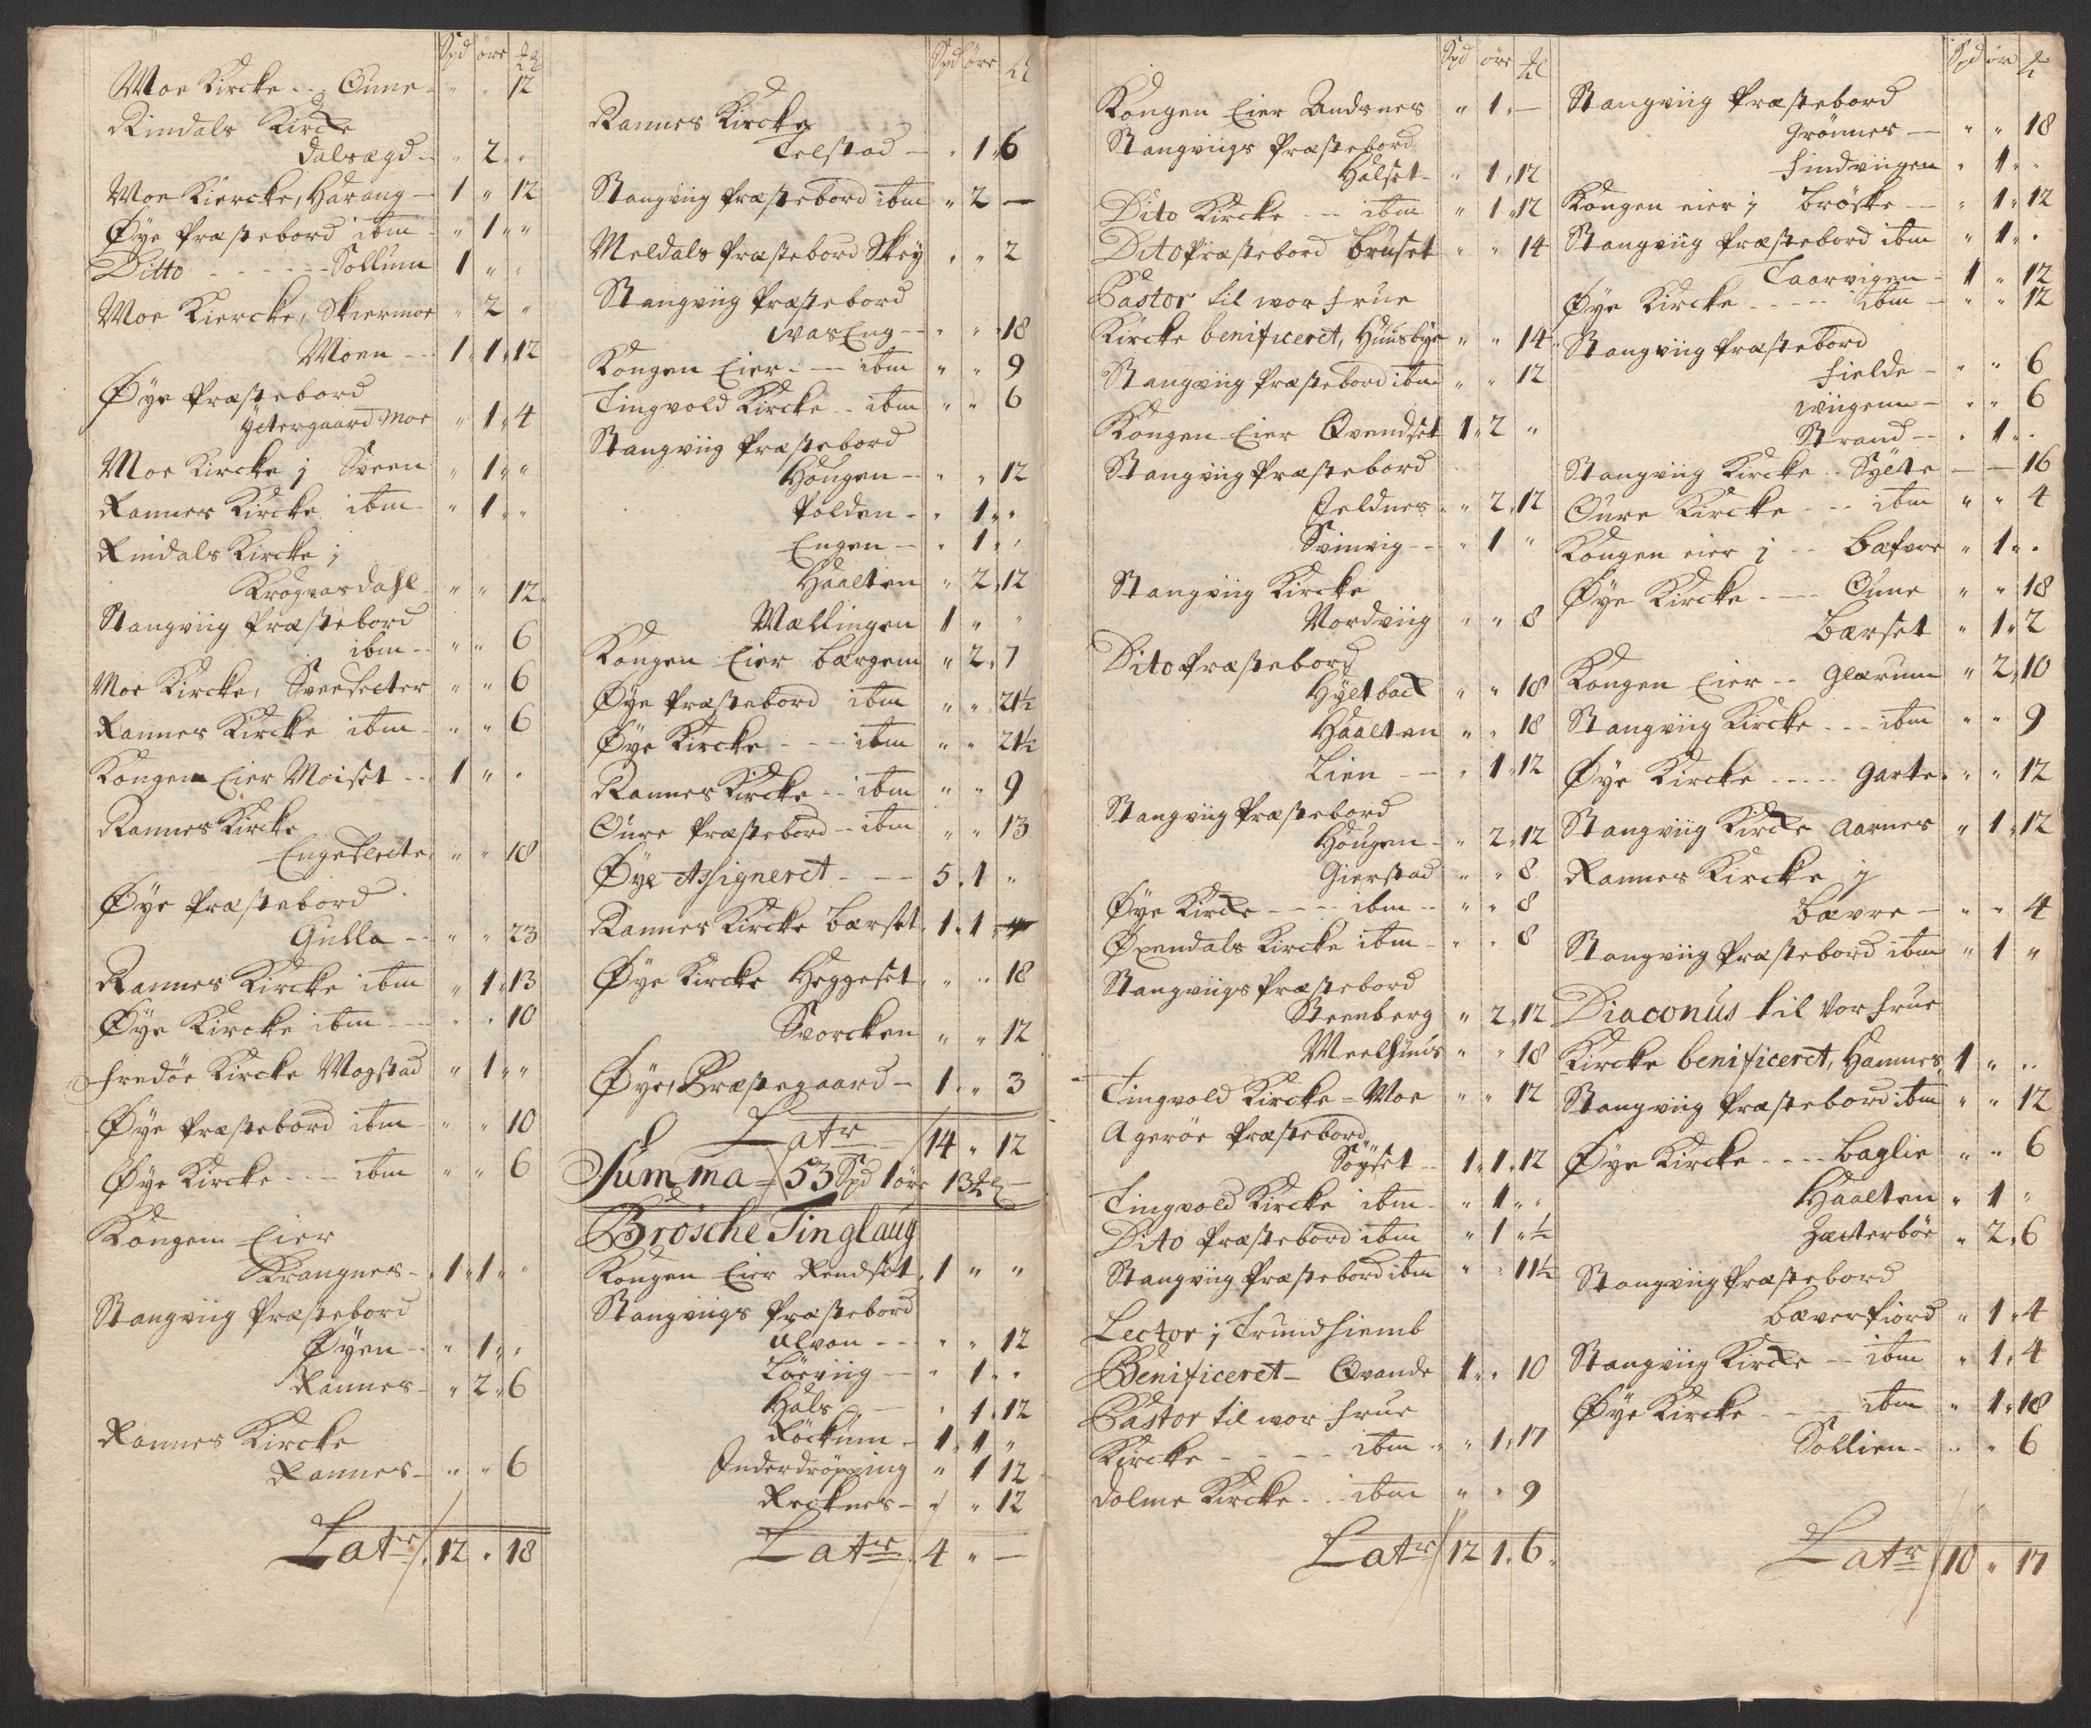 Spd öre
Moe Kircke - - Oune - " " 12
Rindals Kircke
Dalsægd - " 2 " "
Moe Kiercke, Harang - 1 " 12
Øye Præstebord ibm - " 1 " "
Ditto - - - - - Sollium 1 " "
Moe Kiercke, Skiermoe " 2 "
Moen - - 1 " 1 " 12
Øye Præstebord
Ÿttergaard Moe " 1 " 4
Moe Kircke j Sveen " 1 " "
Rannes Kircke ibm - " 1 " "
Rindals Kircke j
Krogvasdahl - " " 12
Stangviig Præstebord
ibm - - " " 6
Moe Kircke, Sverssetter " " 6
Rannes Kircke ibm - " " 6
Kongen Eier Moiset - - 1 " "
Rannes Kircke
" " 18
Øye Præstebord
Gulla - - " " 23
Rannes Kircke ibm " 1 " 13
Øye Kircke ibm - - " " 10
Fredøe Kircke Magstad " 1 " "
Øye Præstebord ibm - " " 10
Øye Kircke - - - ibm " " 6
Kongen Eier
Krangnes - " 1 " 1 " "
Stangviig Præstebord
Øyen - - " 1 " "
Rannes - " 2 " 6
Rannes Kircke
Rannes - " " 6
Latr 12 " 18
Spd öre
Rannes Kircke
Telstad - " 1 " 6
Stangviig Præstebord ibm " 2 —
Meldals Præstebord Skey " " 2
Stangviig Præstebord
WasEng - - " " 18
Kongen Eier - - - ibm " " 9
Tingvold Kircke - - ibm " " 6
Stangviig Præstebord
Hougen - - " " 12
Polden - " 1 " "
Engen - - " 1 " "
Haalten " 2 " 12
Mællingen 1 " "
Kongen Eier Bærgem " 2 " 7
Øye Præstebord ibm " " 21½
Øye Kircke - - - ibm " " 21½
Rannes Kircke - - ibm " " 9
Oure Præstebord - - ibm " " 13
Øye Assigneret - - - 5 " 1 "
Rannes Kircke Bærset " 1 " 1
Øye Kircke Heggeset " " " 18
Svorcken " " 12
Øye, Præstegaard - 1 " " 3
Latr 14 " 12
Summa 53 Spd 1 öre 13
Brösche Tinglaug
Kongen Eier Rendset " 1 " "
Stangviigs Præstebord
Alvan - - " " 12
Löeviig - - " 1 " "
Hals - " 1 " 12
Röckum - 1 " 1 "
Inderdröpping " 1 12
Reiknes - " " 12
Latr 4 " —
Spd öre
Kongen Eier Andsnes " 1 " —
Stangviigs Præstebord
Halset - " 1 " 12
Dito Kircke - - - ibm " 1 " 12
Dito Præstebord Bruset " " 14
Pastor til wor frue
Kircke benificeret, Huusbye " " 14
Stangviig Præstebord ibm " " 12
Kongen Eier Qvendset 1 " 2 "
Stangviig Præstebord
Jeldnes " " 2 " 12
Svinvig - - " 1 "
Stangviig Kircke
Nordviig " " 8
Dito Præstebord
Hÿltback " " 18
Haalten " " 18
Lien - - " 1 " 12
Stangviig Præstebord
Hougen - " 2 " 12
Gierstad " " 8
Øye Kircke - - - - ibm - - " " 8
Øxendals Kircke ibm - " " 8
Stangviigs Præstebord
Steenberg " 2 " 12
Meelhuus " " 18
Tingvold Kircke = Moe " " 12
Agerøe Præstebord
Söyset - - 1 " 1 " 12
Tingvold Kircke ibm - " 1 " "
Dito Præstebord ibm " 1 " ½
Stangviig Præstebord ibm " " 11½
Lector j Trundhiemb
Benificeret - Qvande 1 " " 10
Pastor til wor frue
Kircke - - - - - ibm " " 1 " 17
Dolme Kircke - - - ibm " " 9
Latr 12 1 " 6 "
Spd ör
Stangviig Præstebord
Grönnes - - " " 18
Findviigen " 1 " "
Kongen eier j Bröske - - " 1 " 12
Stangviig Præstebord ibm " 1 " "
Taarvigen - 1 " 12
Øye Kircke - - - - - ibm - " " 12
Stangviig Præstebord
Fielde - " " 6
Wiigenn - " " 6
Strand - - " 1 " "
Stangviig Kircke - - Sÿlte — — 16
Oure Kircke - - - ibm " " 4
Kongen eier j - - Bæfvre " 1 " "
Øye Kircke - - - - Oune " " 18
Bærset " 1 " 2
Kongen Eier - - Glærum " 2 " 10
Stangviig Kircke - - - ibm " " 9
Øye Kircke - - - - - Garte " " " 12
Stangviig Kircke Aarnes " 1 " 12
Rannes Kircke j
Bævre - " " 4
Stangviig Præstebord ibm " 1 "
Diaconus til Vor frue
Kircke benificeret, Hamnes, 1 " "
Stangviig Præstebord ibm " " 12
Øye Kircke - - - - Baglie " " 6
Haalten " 1 "
Zætterböe " 2 " 6
Stangviig Præstebord
Bæverfiord " 1 " 4
Stangviig Kircke - - ibm " 1 " 4
Øye Kircke - - - - ibm " 1 " 18
Sollien - " " 6
Latr 10 " 17